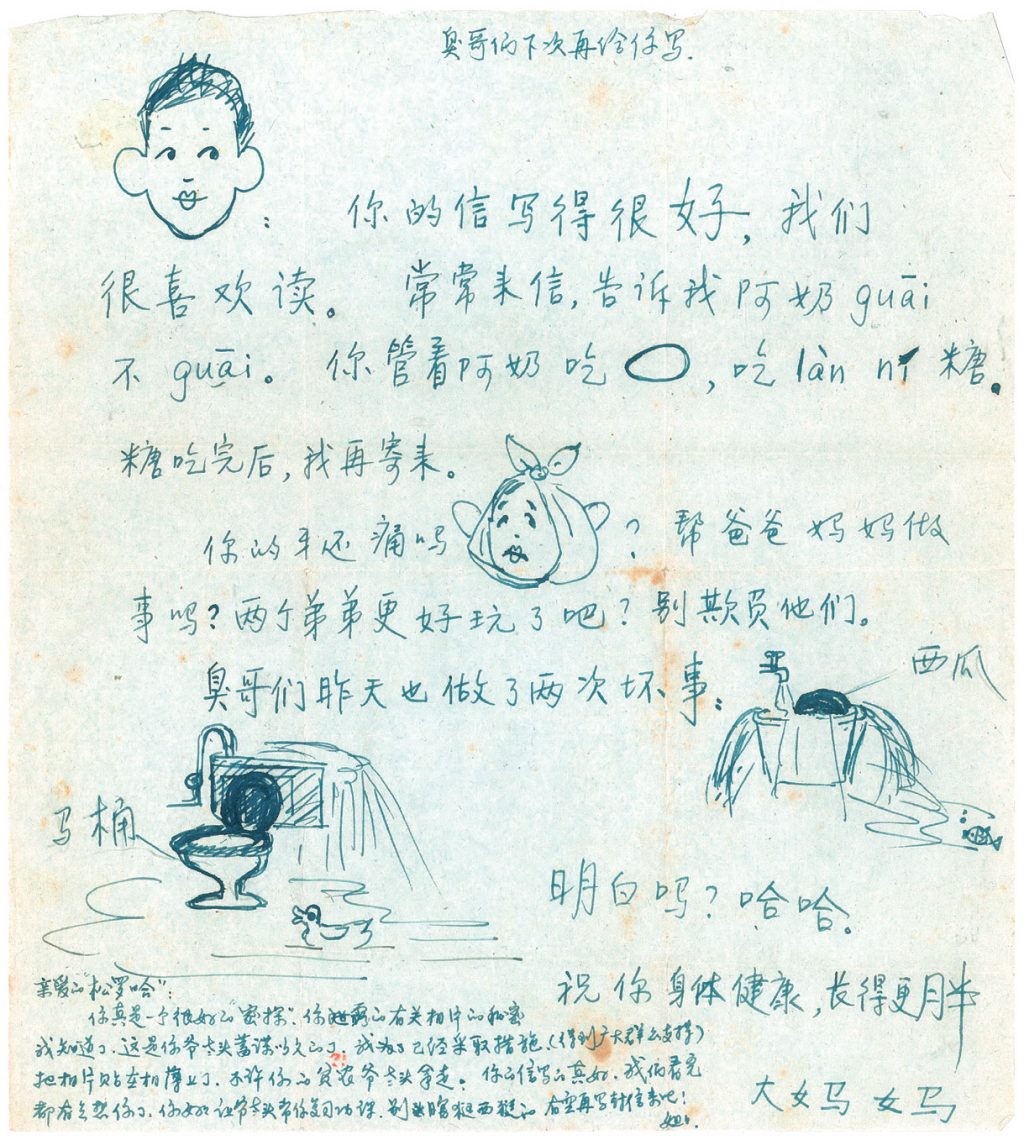 臭哥们下次再给你写.
: 你的信写得很好, 我们
很喜欢读。 常常来信, 告诉我阿奶 guāi
不 guāi。 你管着阿奶吃 , 吃 làn ní 糖。
糖吃完后, 我再寄来。
你的牙还痛吗 ? 帮爸爸妈妈做
事吗? 两个弟弟更好玩了吧? 别欺负他们。
臭哥们昨天也做了两次坏事:
西瓜
马桶
明白吗? 哈哈。
祝你身体健康, 长得更胖
大妈妈
亲爱的"松罗哈":
你真是一个很好的"密探". 你泄露的有关相片的秘密
我知道了. 这是你爷老头蓄谋以久的了. 我们已经采取措施 (得到广大群众支持)
把相片贴在相薄上了. 不许你的 爷老头拿走. 你的信写的真好. 我们看完
都有点想你了. 你好好让爷老头帮你复习功课. 别 有空再写封信来吧!